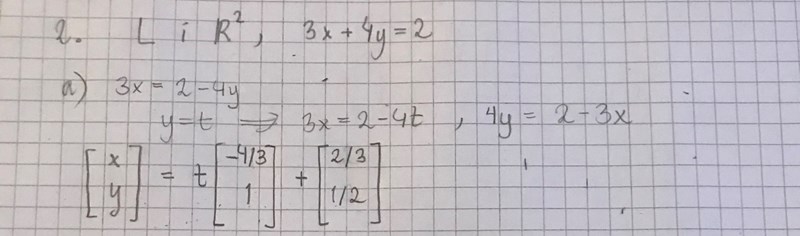 2. L i R², 3x + 4y = 2
a) 3x = 2 - 4y
y = t ⟹ 3x = 2 - 4t, 4y = 2 - 3x
[x y] = t [-4/3 1] + [2/3 1/2]